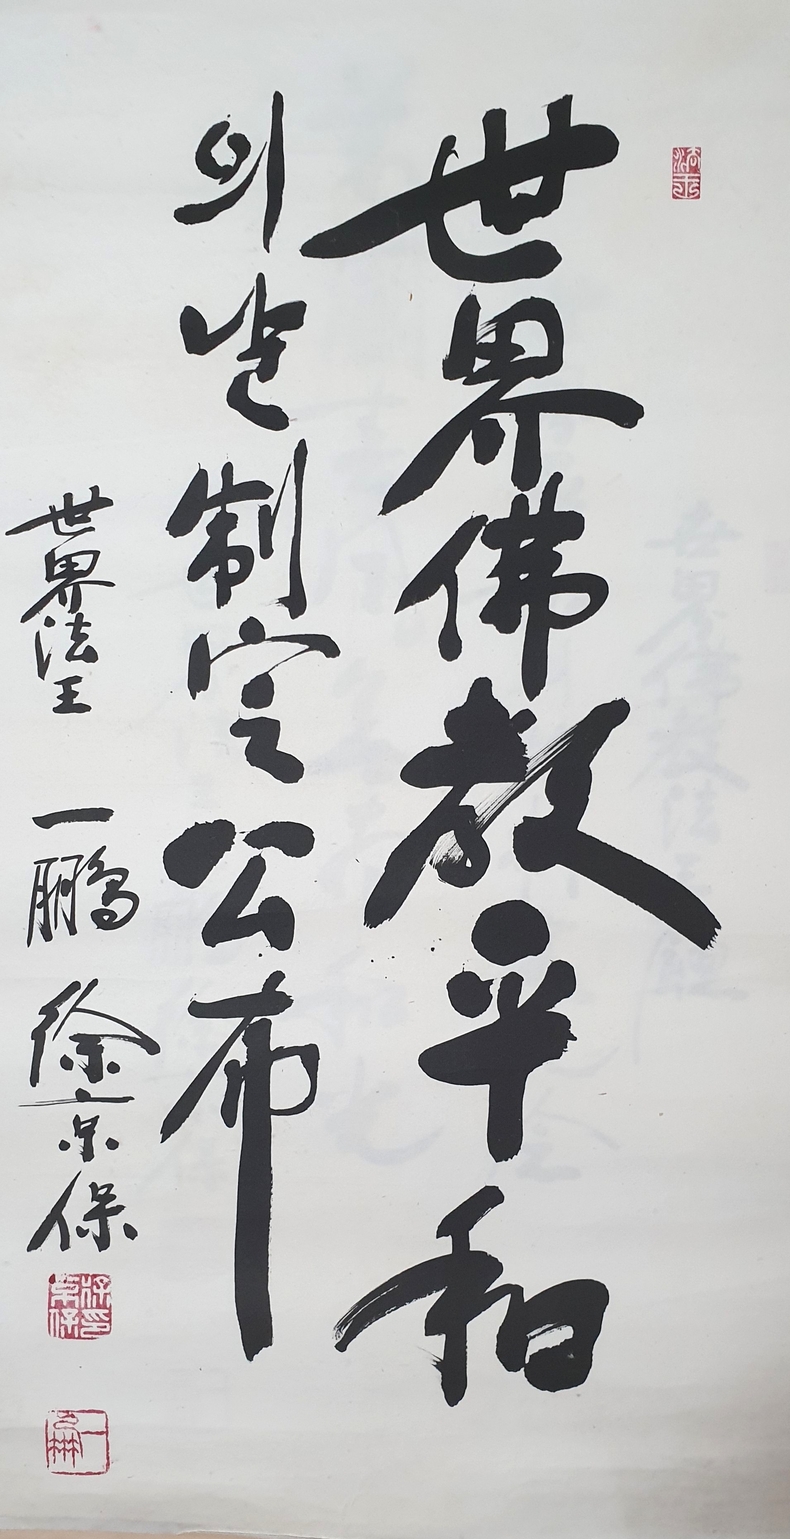 世界佛教平和
의 날 制定公布
世界法王 一鵬 徐京保